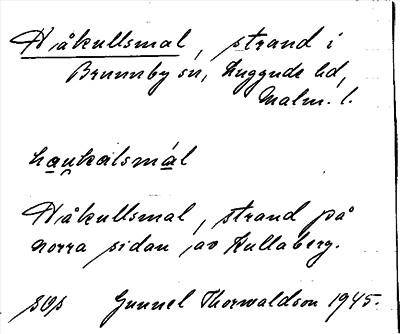 Håkullsmal, strand i
Brunnby sn, Luggude hd,
Malm. l.
haukalsmál
Håkullsmal, strand på
norra sidan av Kullaberg.
Gunnel Thorwaldson 1945.